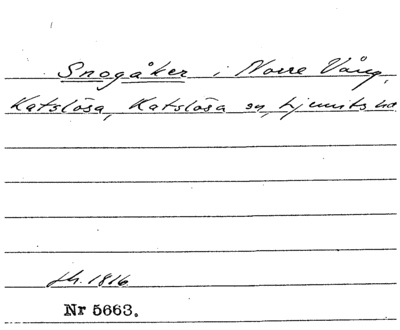 Snogåker i Norre Vång,
Katslösa, Katslösa sn, Ljunits hd
fh. 1816
Nr 5663.